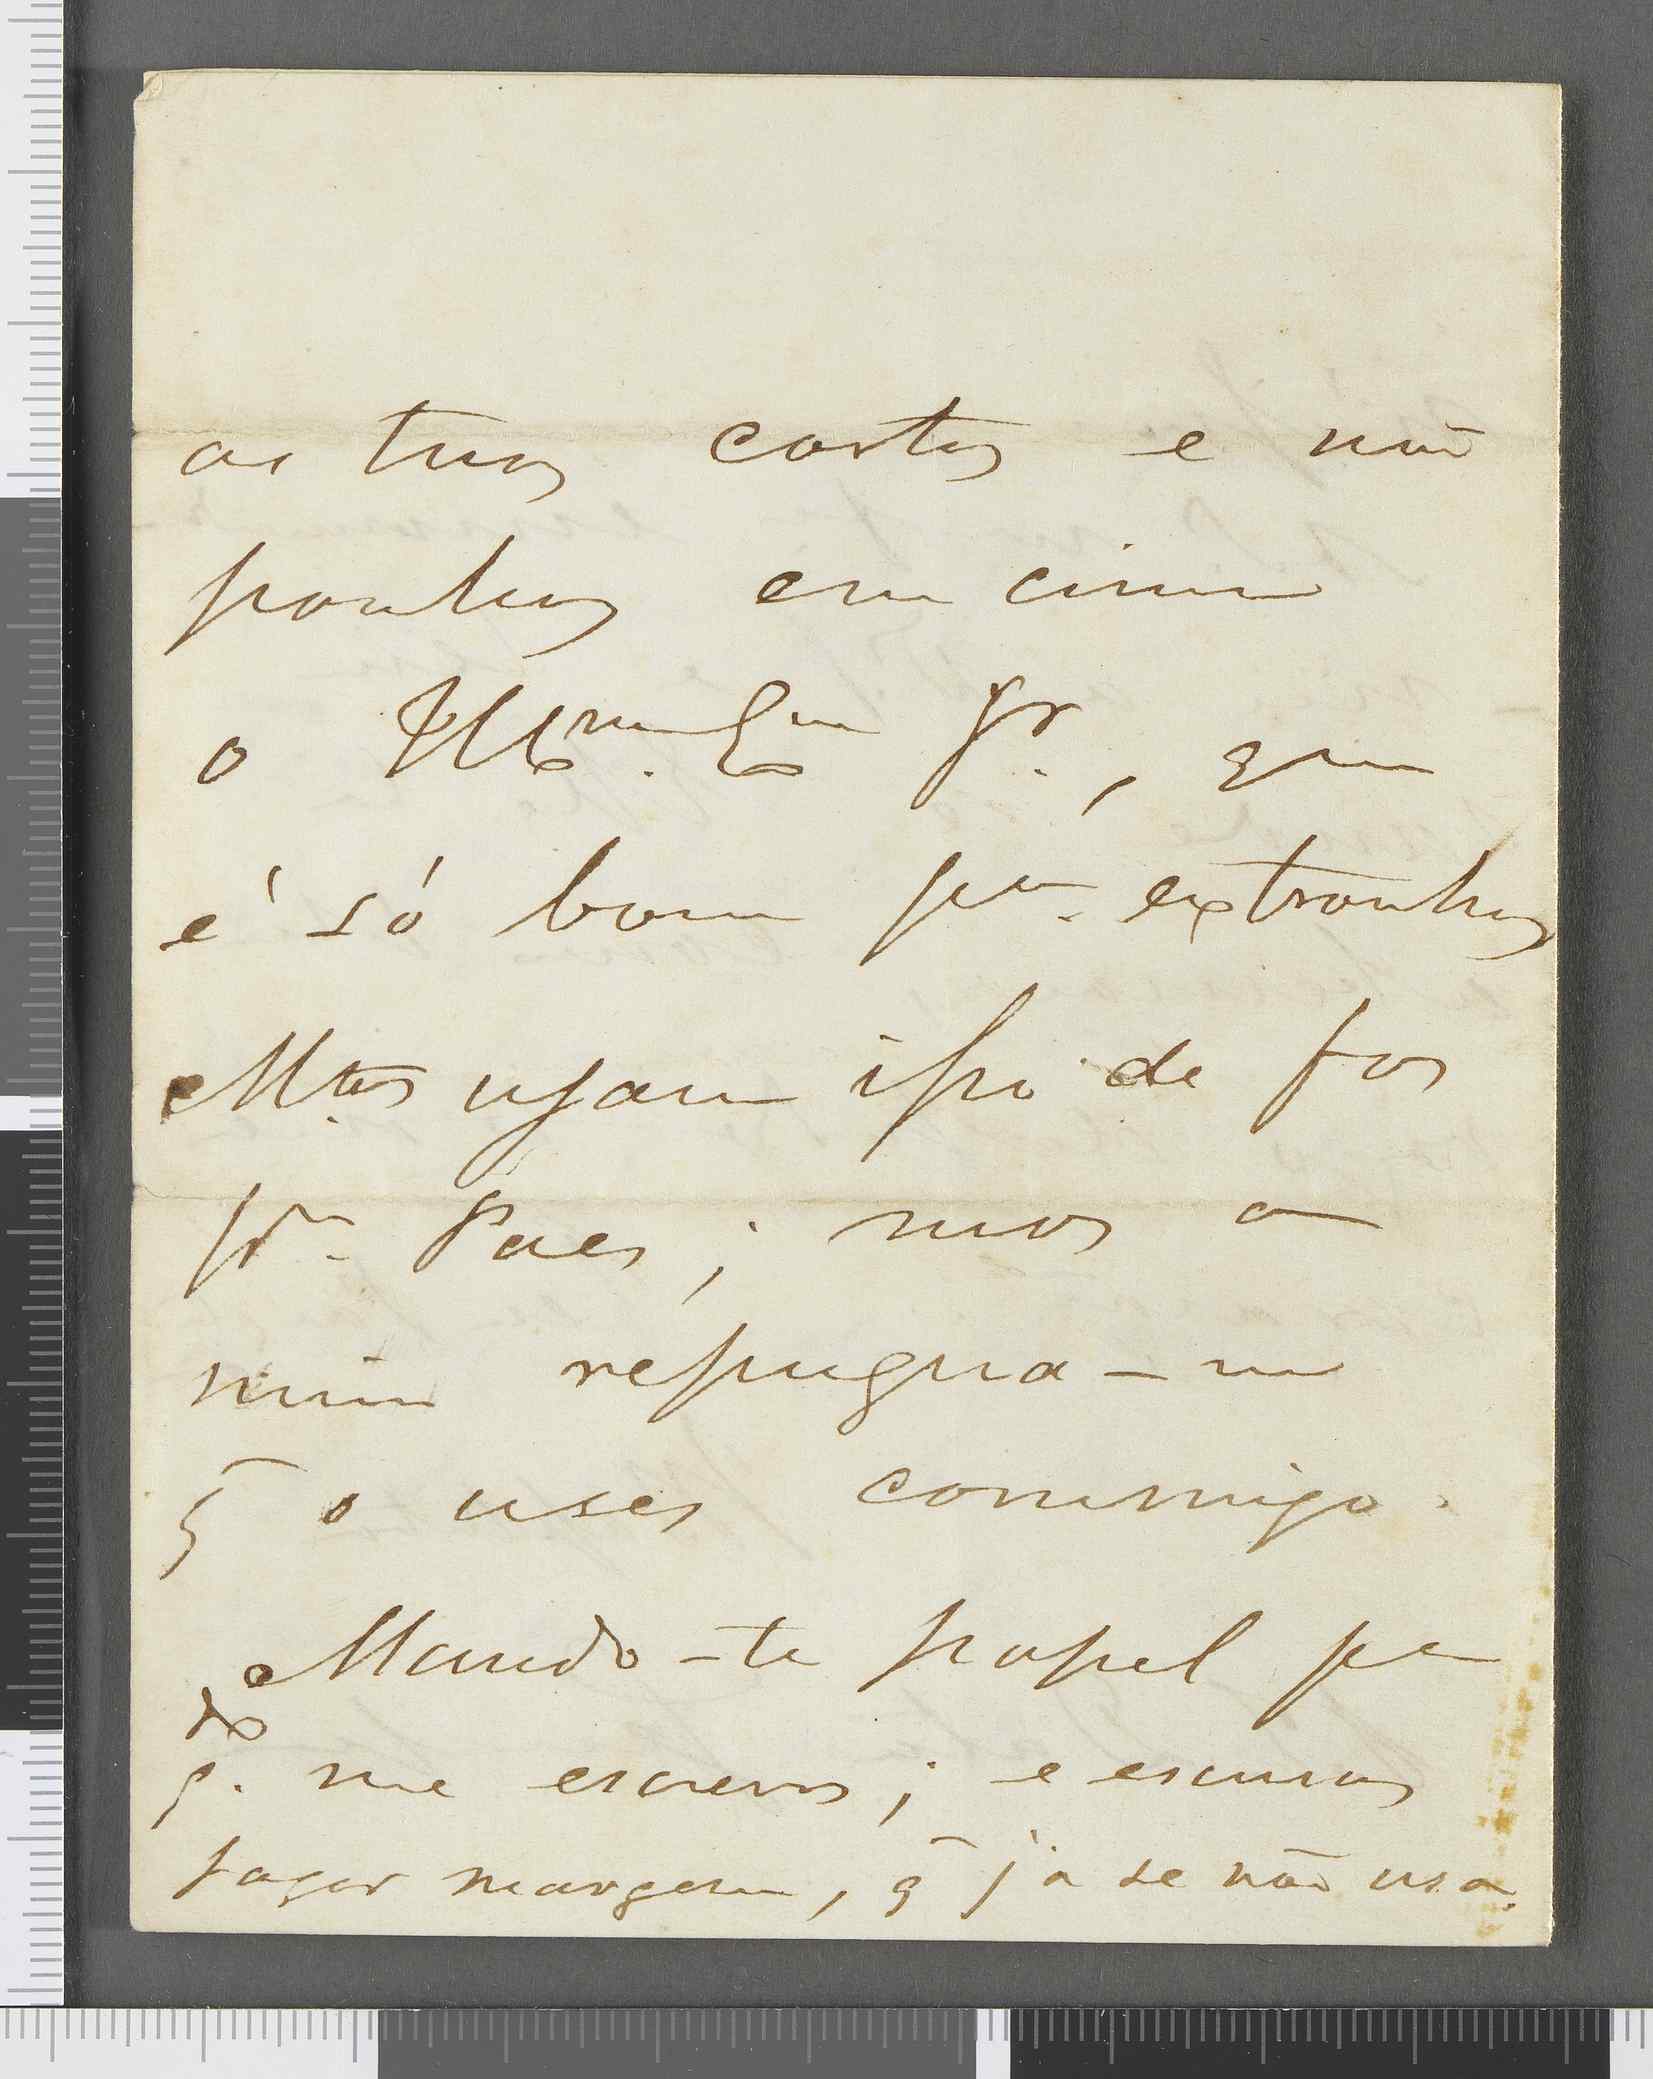 as tuas cartas e não
ponhas em cima
o Illmo. Exmo Sr., que
é só bom pa. extranhos
Mtos. usam isso de fos
pa. Paes; mas a
mim repugna-me
q̃ o uses commigo.
Mando-te papel pa
qdo. me escreves; e escusas
fazer margem, q̃ já se não usa.